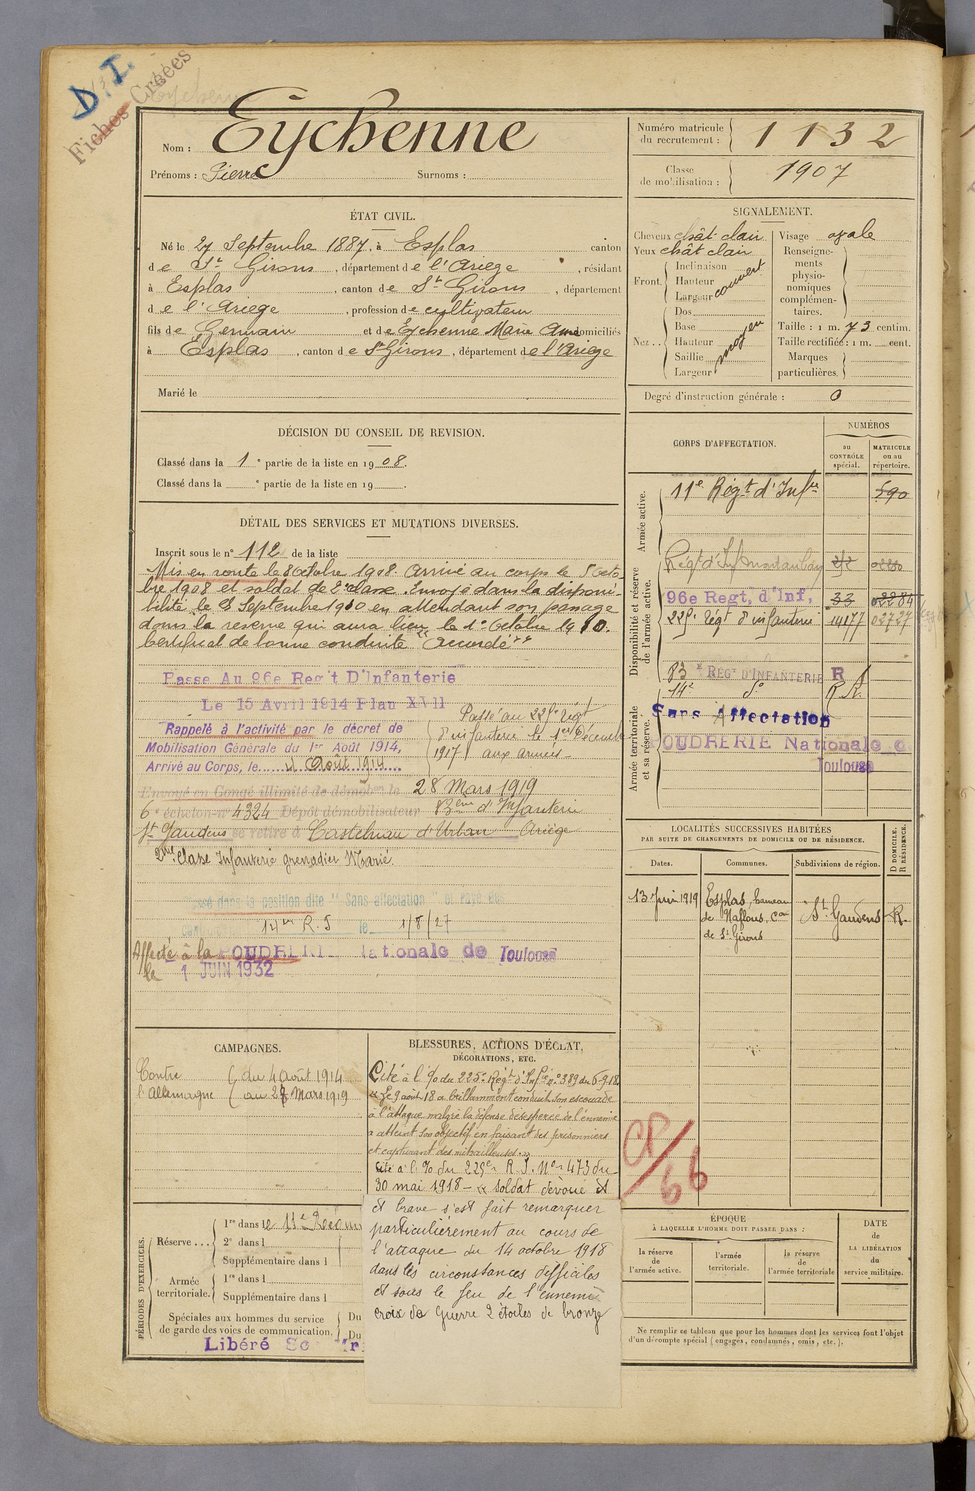 D. I.
Fiches Créées
Nom : Eychenne
Prénoms : Pierre Surnoms :
Numéro matricule du recrutement : 1132
Classe de mobilisation : 1907
ÉTAT CIVIL.
Né le 27 Septembre 1887, à Esplas canton
de St Girons, département de l'Ariège, résidant
à Esplas, canton de St Girons, département
de l'Ariège, profession de cultivateur
fils de Germain et de Eychenne Marie Anne domiciliés
à Esplas, canton de St Girons, département de l'Ariège
Marié le
SIGNALEMENT.
Cheveux chât clair Visage ovale
Yeux chât clair
Front. Inclinaison Hauteur Largeur couvert
Nez.. Dos Base Hauteur Saillie Largeur moyen
Renseignements physionomiques complémentaires.
Taille : 1 m. 73 centim.
Taille rectifiée : 1 m. cent.
Marques particulières.
Degré d'instruction générale : 0
DÉCISION DU CONSEIL DE REVISION.
Classé dans la 1e partie de la liste en 1908.
Classé dans la e partie de la liste en 19 .
DÉTAIL DES SERVICES ET MUTATIONS DIVERSES.
Inscrit sous le n° 112 de la liste
Mis en route le 8 Octobre 1908. Arrivé au corps le 8 Octo-
bre 1908 et soldat de 2e classe. Envoyé dans la disponi-
bilité le Septembre 1910 en attendant son passage
dans la réserve qui aura lieu le 1er Octobre 1910.
Certificat de bonne conduite "Accordé"
Passé Au 96e Reg't D'Infanterie
Le 15 Avril 1914 Plan XVII
Rappelé à l'activité par le décret de
Mobilisation Générale du 1er Août 1914,
Arrivé au Corps, le 4 Août 1914
Passé au 225e Régt
d'infanterie le 1er Décembre
1917 aux armées
Envoyé en Congé illimité de démob. le 28 Mars 1919
6e échelon n° 4324 Dépôt démobilisateur 83ème d'Infanterie
St Gaudens se retire à Castelnau d'Urban Ariège
2me Classe Infanterie grenadier Marié.
dans la position dite "Sans affectation" et rayé des
14me R. I le 1/8/27
Affecté à la POUDRERIE Nationale de Toulouse
le 1 JUIN 1932
CORPS D'AFFECTATION.
NUMÉROS
au CONTRÔLE spécial.
MATRICULE ou au répertoire.
Armée active.
11e Régt d'Infie 590
Disponibilité et réserve de l'armée active.
Régt d'Inf Montauban
96e Regt, d'Inf, 33 02284
225e Régt d'infanterie 14177 02727
83e REGt D'INFANTERIE R
14e do
Armée territoriale et sa réserve.
Sans Affectation
POUDRERIE Nationale de
Toulouse
LOCALITÉS SUCCESSIVES HABITÉES
PAR SUITE DE CHANGEMENTS DE DOMICILE OU DE RÉSIDENCE.
Dates. Communes. Subdivisions de région. D DOMICILE. R RÉSIDENCE.
13 Juin 1919 Esplas, hameau St Gaudens R.
de Naflous, con
de St Girons
CAMPAGNES.
Contre l'Allemagne du 4 août 1914
au 28 Mars 1919
BLESSURES, ACTIONS D'ÉCLAT,
DÉCORATIONS, ETC.
Cité à l'o/ du 225e Régt d'Infie n° 389 du 6-9-18
« Le 9 août 18 a brillamment conduit son escouade
à l'attaque malgré la défense désespérée de l'ennemi
a atteint son objectif en faisant des prisonniers
et capturant des mitrailleuses. »
Cité à l'o/ du 225e R.I. No 473 du
30 mai 1918 - « Soldat dévoué et
et brave s'est fait remarquer
particulièrement au cours de
l'attaque du 14 octobre 1918
dans les circonstances difficiles
et sous le feu de l'ennemi
croix de guerre 2 étoiles de bronze
CP/66
PÉRIODES D'EXERCICES.
Réserve... 1re dans le 11e
2e dans l
Supplémentaire dans l
Armée territoriale. 1re dans l
Supplémentaire dans l
Spéciales aux hommes du service
de garde des voies de communication. Du
Du
Libéré
ÉPOQUE
À LAQUELLE L'HOMME DOIT PASSER DANS :
la réserve de l'armée active.
l'armée territoriale.
la réserve de l'armée territoriale
DATE de LA LIBÉRATION du service militaire.
Ne remplir ce tableau que pour les hommes dont les services font l'objet
d'un décompte spécial (engagés, condamnés, omis, etc.).